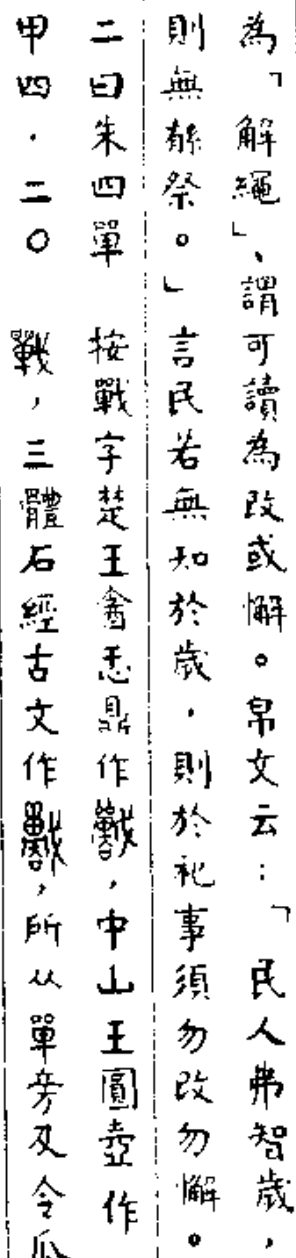 為「解繩」、謂可讀為改或懈。帛文云:「民人弗智歲,
則無繇祭。」言民若無知於歲,則於祀事須勿改勿懈。
二曰朱四單 按戰字楚王酓忎鼎作,中山王圓壺作
甲四·二〇 戰,三體石經古文作,所从單旁及令瓜